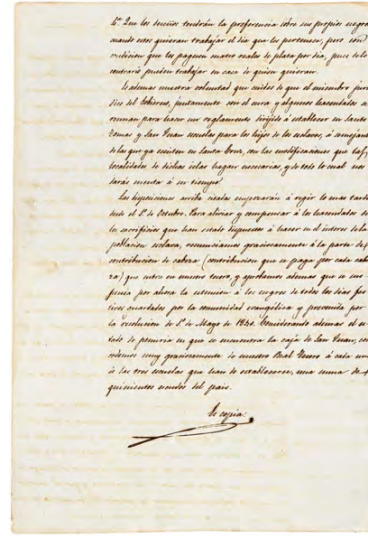 4º Que los dueños tendrán la preferencia sobre sus propios negros
cuando estos quieran trabajar el dia que les pertenece, pero con
condicion que les paguen cuatro reales de plata por dia, pues de lo
contrario pueden trabajar en casa de quien quieran.
Es ademas nuestra voluntad que cuides de que el miembro juri-
dico del Gobierno, juntamente con el cura y algunos hacendados se
reunan para hacer un reglamento dirijido á establecer en Santo
Tomas y San Juan escuelas para los hijos de los esclavos, á semejanza
de las que ya existen en Santa Cruz, con las modificaciones que las
localidades de dichas islas hagan necesarias, y de todo lo cual nos
darás cuenta á su tiempo.
Las disposiciones arriba citadas empezarán á regir lo mas tarde
desde el 1º de Octubre. Para aliviar y compensar á los hacendados de
los sacrificios que han estado dispuestos á hacer en el interes de la
poblacion esclava, renunciamos graciosamente á la parte de
contribucion de cabeza (contribucion que se paga por cada cabe-
za) que entra en nuestro tesoro, y aprobamos ademas que se sus-
penda por ahora la estension á los negros de todos los dias fes-
tivos guardados por la comunidad evangélica y prevenida por
la resolucion de 1º de Mayo de 1840. Considerando ademas el es-
tado de penuria en que se encuentra la caja de San Juan, con-
cedemos muy graciosamente de nuestro Real Tesoro á cada una
de las tres escuelas que han de establecerse, una suma de
quinientos pesos del pais.
Es copia